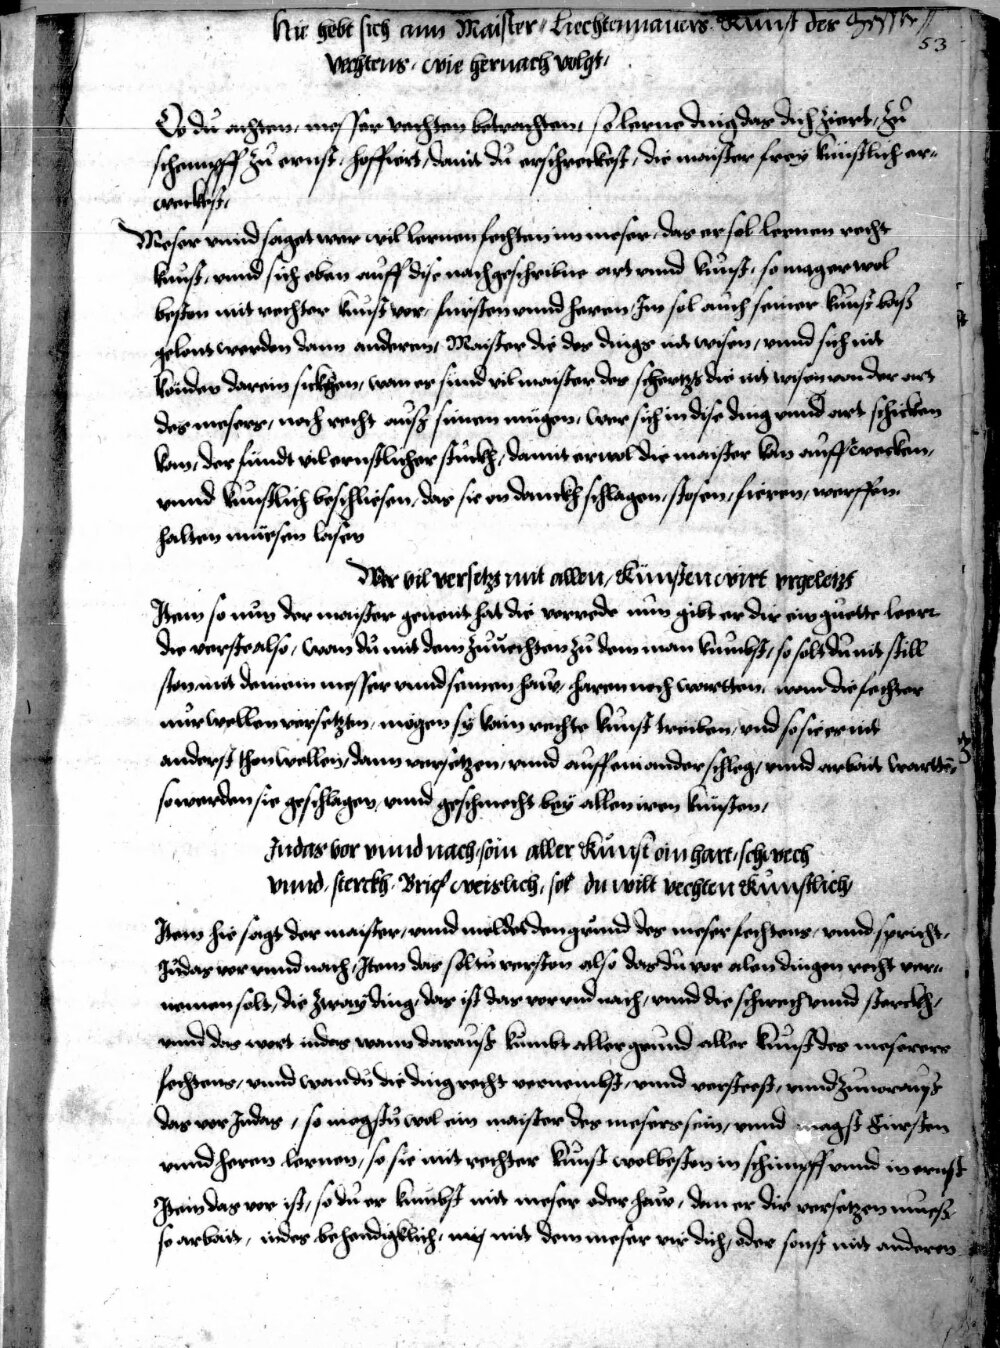 Hie hebt sich ann Maister Liechtennauers Kunst des
53
vechtens wie hernach volgt
Ob du achten, messer vechten betrachten, so lerne ding das dich ziert, zů
schimpff zů ernst, hoffiert, damit dů erschreckest, die maister frey künstlich er-
weckest,
Meser vnnd saget wer wil lernen fechten im meser, das er sol lernen recht
kunst, vnnd sich eben auff dise nachgeschribne art vnnd kunst, so mag er wol
beston mit rechter kunst vor, fürsten vnnd heren, Im sol auch seiner kunst bass
gelont werden dann anderen, Maister die des dings nit wisen, vnnd sich nit
künden darein schicken, wan er sind vil maister des schertzs die nit wisen von der art
des mesers, noch recht auss sinen mügen, wer sich in dise ding vnnd art schicken
kan, der findt vil ernstlicher stuckh, damit er wol die maister kan auff wecken,
vnnd kunstlich beschliesen, das sie on danckh schlagen, stosen, fieren, werffen,
halten müesen lasen
Wer vil versetzt mit allen, künsten wirt vrgeletzt
Item so nun der maister genent hat die vorrede nun gibt er dir ein guette leer
die verste also, wan dů mit dem zůuechten zů dem man kumbst, so solt dů nit still
ston mit deinem messer vnnd seinem haw, haren noch wartten, wann die fechter
nur wellen versetzen, mögen sy kain rechte kunst treiben, vnd so sie es nit
anderst thon wellen, dann versetzen, vnnd auff ein ander schleg, vnnd arbait wartten
so werden sie geschlagen, vnnd geschmecht bey allen iren künsten,
Indas vor vnnd nach, sein aller kunst ein hart, schwech
vnnd, sterckh, brief weislich, sol du wilt vechten kunstlich
Item hie sagt der maister, vnnd meldet den grund des meser fechtens, vnnd spricht,
Indas vor vnnd nach, Item das solt du verston also das dů vor alen dingen recht ver-
nemen solt, die zway ding, das ist das vor vnd nach, vnnd die schwech vnnd sterckh,
vnnd das wort indas wann darauss kumbt aller grund aller kunst des meserers
fechtens, vnnd wan dů die ding recht vernembst, vnnd versteest, vnnd zuuorauss
das vor Indas, so magstu wol ein maister des mesers sein, vnnd magst fürsten
vnnd heren lernen, so sie mit rechter kunst wol beston in schimpff vnnd in ernst
Item das vor ist, so dů er kumbst mit meser oder haw, dan er dir versetzen muess
so arbait, indes behendigklich, mit dem meser vir dich, oder sonst mit anderen